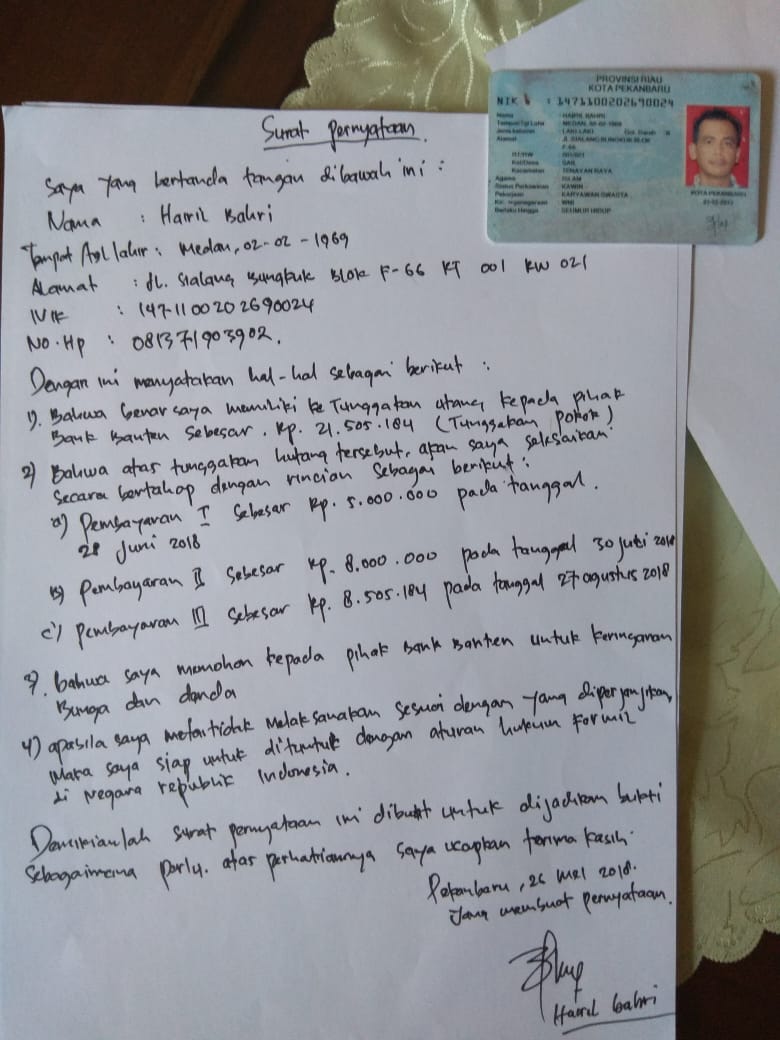 PROVINSI RIAU
KOTA PEKANBARU
NIK : 1471100202690024
Nama : HAIRIL BAHRI
Tempat/Tgl Lahir : MEDAN, 02-02-1969
Jenis kelamin : LAKI-LAKI Gol. Darah : B
Alamat : JL. SIALANG BUNGKUK BLOK
F-66
RT/RW : 001/021
Kel/Desa : SAIL
Kecamatan : TENAYAN RAYA
Agama : ISLAM
Status Perkawinan : KAWIN
Pekerjaan : KARYAWAN SWASTA
Kewarganegaraan : WNI
Berlaku Hingga : SEUMUR HIDUP
KOTA PEKANBARU
Surat Pernyataan.
Saya yang bertanda tangan dibawah ini :
Nama : Hairil Bahri
Tempat tgl lahir : Medan, 02-02-1969
Alamat : Jl. Sialang Bungkuk Blok F-66 RT 001 RW 021
NIK : 1471100202690024
No. Hp : 081371903902.
Dengan ini menyatakan hal-hal sebagai berikut :
1). Bahwa benar saya memiliki ke Tunggakan utang kepada pihak
Bank Banten Sebesar. Rp. 21.505.184 (Tunggakan pokok)
2) Bahwa atas tunggakan hutang tersebut, akan saya selesaikan
Secara bertahap dengan rincian sebagai berikut :
a) Pembayaran I Sebesar Rp. 5.000.000 pada tanggal.
28 Juni 2018
b) Pembayaran II Sebesar Rp. 8.000.000 pada tanggal 30 Juli 2018
c) Pembayaran III Sebesar Rp. 8.505.184 pada tanggal 27 agustus 2018
3). bahwa saya memohon kepada pihak Bank Banten untuk keringanan
Bunga dan denda
4) apabila saya tidak melaksanakan sesuai dengan yang diperjanjikan,
Maka saya siap untuk dituntut dengan aturan hukum Formil
di Negara republik Indonesia.
Demikianlah surat pernyataan ini dibuat untuk dijadikan bukti
Sebagaimana perlu. atas perhatiannya saya ucapkan terima kasih.
Pekanbaru, 26 Mei 2018.
Yang membuat pernyataan.
Hairil Bahri